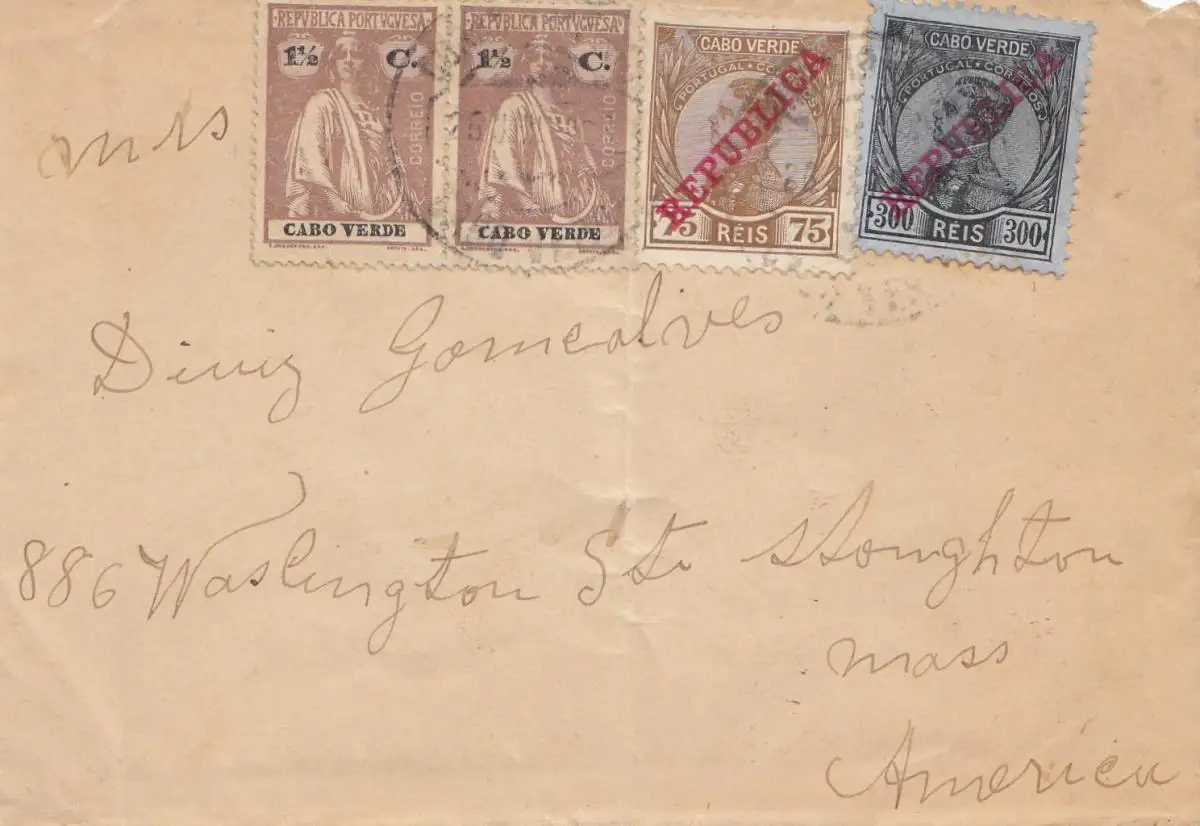 REPVBLICA PORTVGVESA
1½ C.
CORREIO
CABO VERDE
REPVBLICA PORTVGVESA
1½ C.
CORREIO
CABO VERDE
CABO VERDE
PORTUGAL • CORREIOS
REPUBLICA
75 RÉIS 75
CABO VERDE
PORTUGAL • CORREIOS
REPUBLICA
300 RÉIS 300
mrs
Diniz Gomcalves
886 Waslington St. Stoughton
mass
America